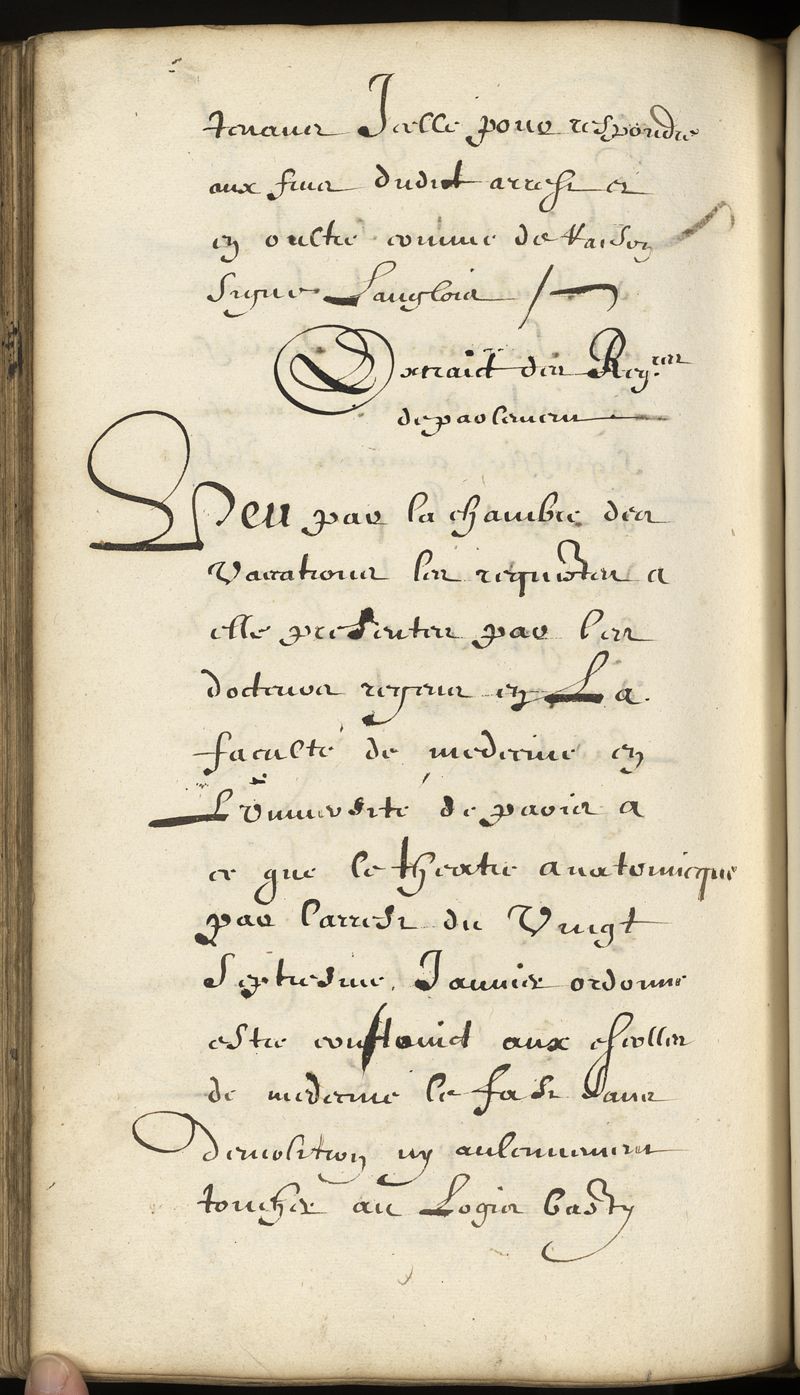 tenans Jcelle pour respondre
aux fins dudict arrest et
en oultre comme de Raison
Signé Langlois
Extraict des Reg.res
de parlement
Veu par la chambre des
Vacations les requestes a
elle presentes par les
docteurs regens en La
faculté de medecine en
L'Université de paris a
ce que le theatre anatomicque
par l'arrest du Vingt
Septiesme Januier ordonne
estre construict aux escolles
de medecine le fast sans
demolition ny aulcunement
toucher au Logis basty